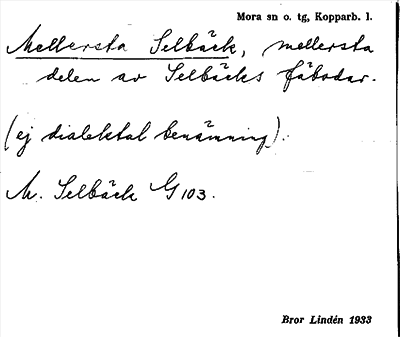 Mora sn o. tg, Kopparb. l.
Mellersta Selbäck, mellersta
delen av Selbäcks fäbodar.
(ej dialektal benämning).
M. Selbäck G 103.
Bror Lindén 1933